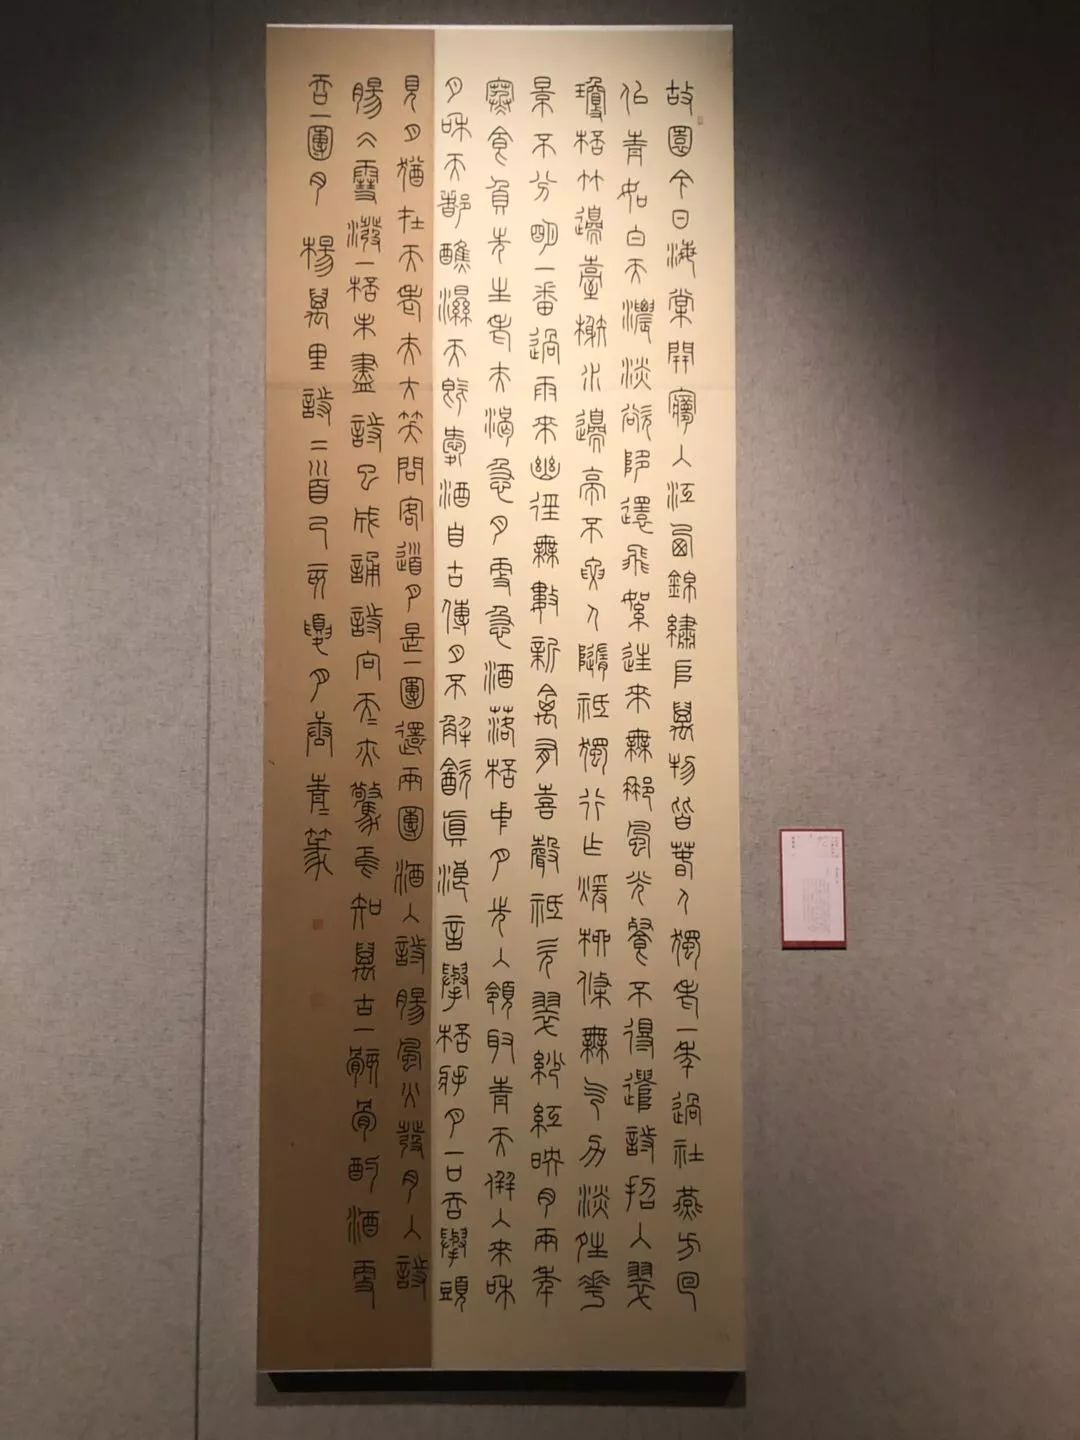 故園今日海棠開夢入江西錦繡堆萬物皆春人獨老一年過社燕方回
似青如白天濃淡欲墮還飛絮往來無那風光餐不得遣詩招入翠
瓊杯竹邊臺榭水邊亭不要人隨祗獨行乍暖柳條無气力淡晴花
景不分明一番過雨來幽徑無數新禽有喜聲祗欠翠紗紅映肉兩年
寒食負先生老夫渴急月更急酒落杯中月先入領取青天併入來和
月和天都蘸濕天既愛酒自古傳月不解飲真浪言舉杯將月一口吞舉頭
見月猶在天老夫大笑問客道月是一團還兩團酒入詩腸風火發月入詩
腸冰雪潑一杯未盡詩已成誦詩向天天亦驚焉知萬古一骸骨酌酒更
吞一團月 楊萬里詩二首己亥夏月唐青篆